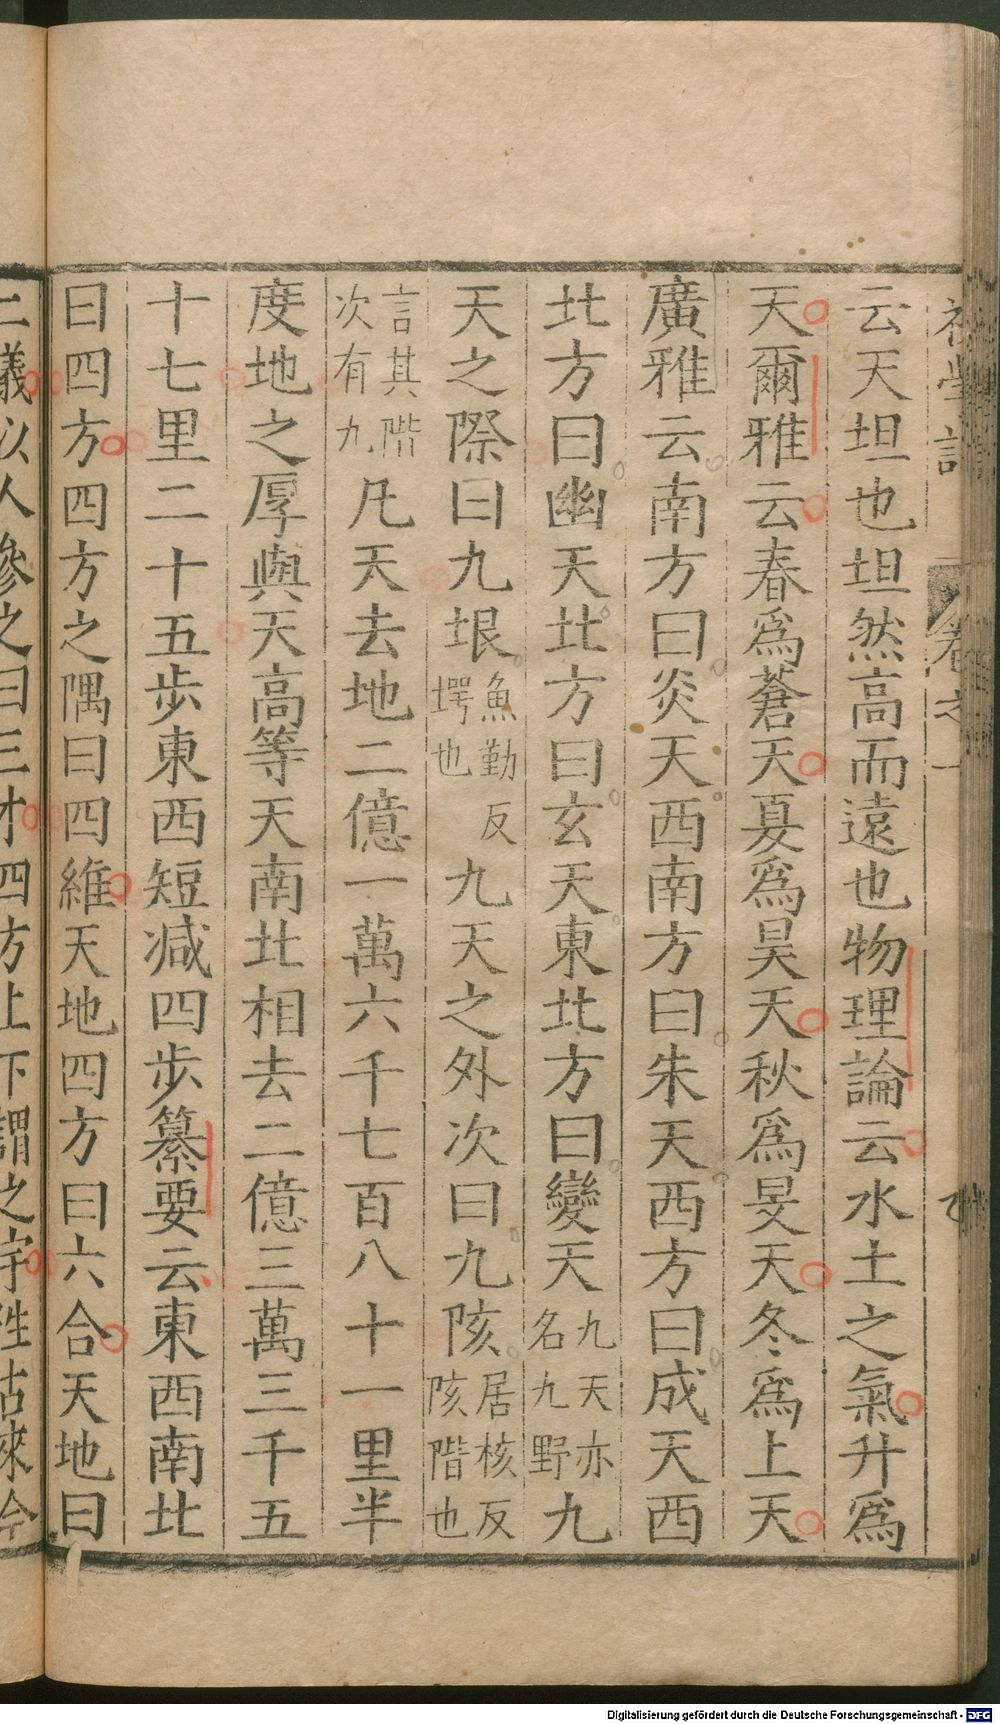 初學記 卷之一
云天坦也坦然高而遠也物理論云水土之氣升爲
天爾雅云春爲蒼天夏爲昊天秋爲旻天冬爲上天
廣雅云南方曰炎天西南方曰朱天西方曰成天西
北方曰幽天北方曰玄天東北方曰變天九天亦名九野九
天之際曰九垠魚勤反堮也九天之外次曰九陔居核反陔階也
言其階次有九凡天去地二億一萬六千七百八十一里半
度地之厚與天高等天南北相去二億三萬三千五
十七里二十五步東西短减四步纂要云東西南北
曰四方四方之隅曰四維天地四方曰六合天地曰
二儀以人參之曰三才四方上下謂之宇往古來今
Digitalisierung gefördert durch die Deutsche Forschungsgemeinschaft - DFG